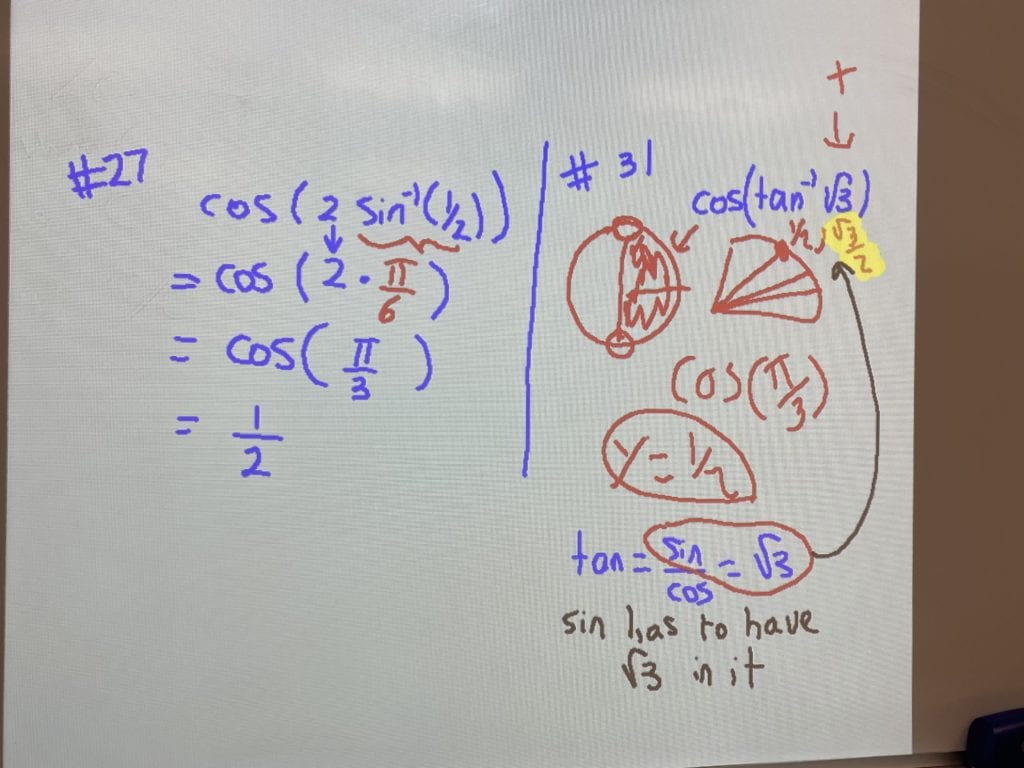 #27
cos(2 sin⁻¹(1/2))
= cos(2 · π/6)
= cos(π/3)
= 1/2
#31
+
cos(tan⁻¹ √3)
1/2, √3/2
cos(π/3)
y = 1/2
tan = sin/cos = √3
sin has to have
√3 in it